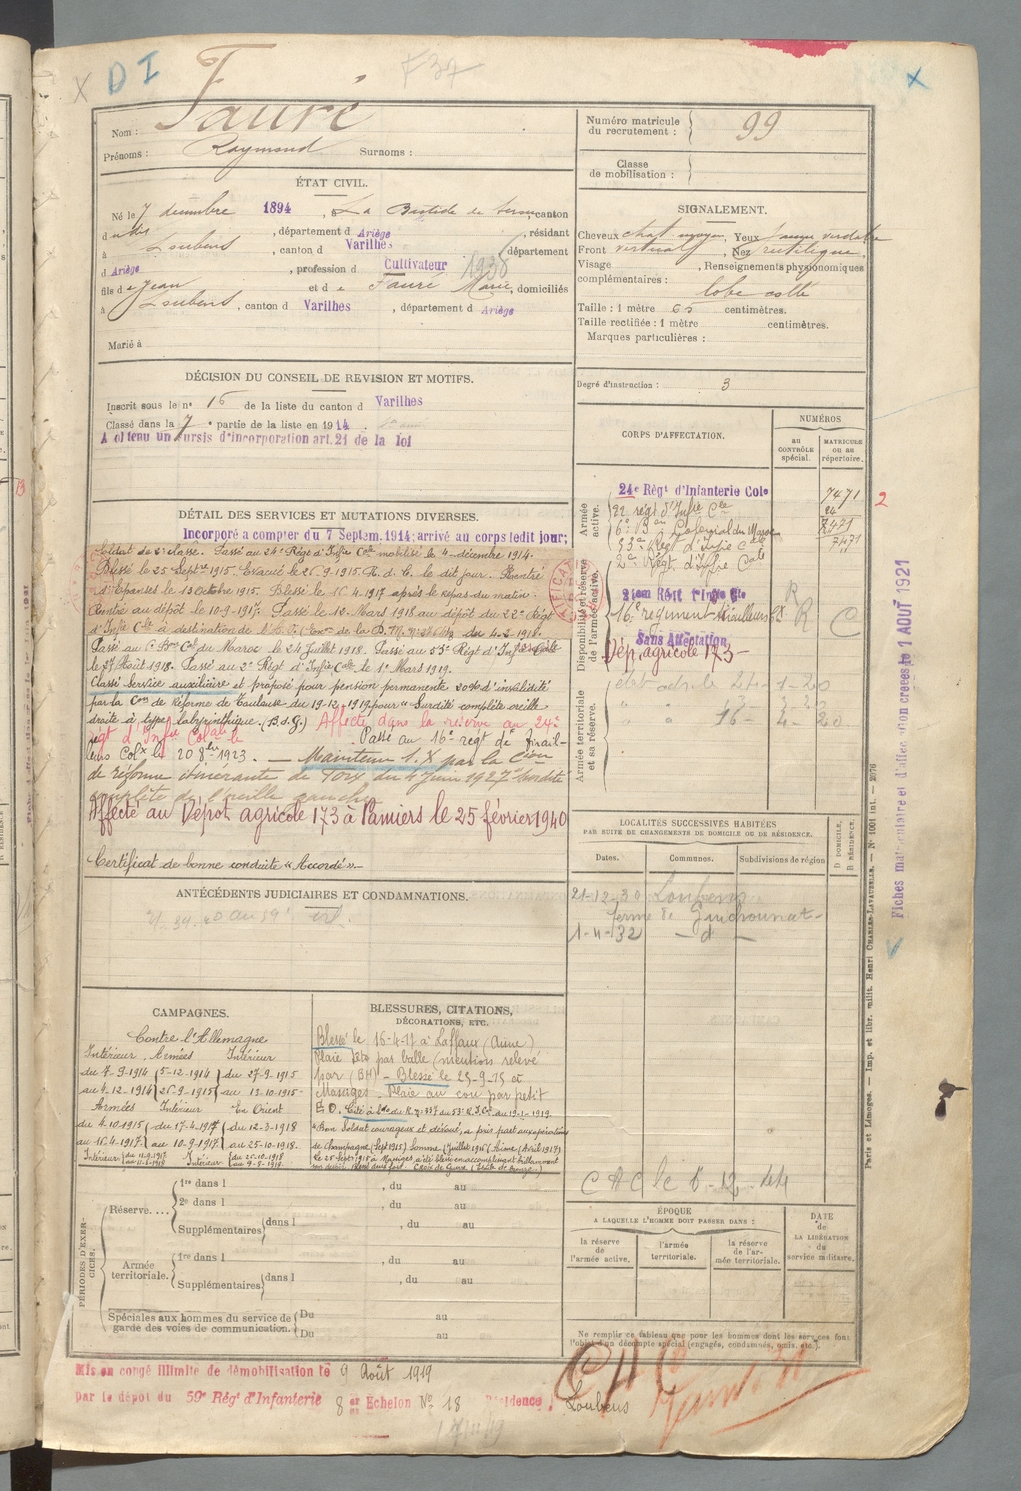 X D I
F37
X
Nom : Fauré
Prénoms : Raymond Surnoms :
Numéro matricule du recrutement : 99
Classe de mobilisation :
ÉTAT CIVIL.
Né le 7 décembre 1894, à La Bastide de canton
d dit, département d Ariège, résidant
à Loubens, canton d Varilhes département
d Ariège, profession d Cultivateur 1938
fils de Jean et de Fauré Marie, domiciliés
à Loubens, canton d Varilhes, département d Ariège
Marié à
SIGNALEMENT.
Cheveux chat moyen, Yeux jaune verdâtre
Front vertical, Nez rectiligne,
Visage , Renseignements physionomiques
complémentaires :
lobe collé
Taille : 1 mètre 65 centimètres.
Taille rectifiée : 1 mètre centimètres.
Marques particulières :
Degré d'instruction : 3
DÉCISION DU CONSEIL DE REVISION ET MOTIFS.
Inscrit sous le n° 16 de la liste du canton d Varilhes
Classé dans la 7e partie de la liste en 1914.
A obtenu un sursis d'incorporation art. 21 de la loi
CORPS D'AFFECTATION.
NUMÉROS
au CONTRÔLE spécial.
MATRICULE OU AU répertoire.
Armée active.
24e Régt d'Infanterie Cole 7471
22 régt d'Infie Cle
6e Bon Colonial du Maroc 7471
53e Régt d'Infie Cale 7471
2e Régt d'Infie Cale
Disponibilité et réserve de l'armée active.
21eme Régt d'Infie Cle R
16e régiment tirailleurs Cx R C
Sans Affectation
Dép. agricole 173
Armée territoriale et sa réserve.
16 - 4 - 20
2
DÉTAIL DES SERVICES ET MUTATIONS DIVERSES.
Incorporé a compter du 7 Septem. 1914; arrivé au corps ledit jour;
Soldat de 2e classe. Passé au 24e Régt d'Infie Cale mobilisé le 4 décembre 1914.
Blessé le 25 Septre 1915. Evacué le 26-9-1915. R. d. C. le dit jour. Rentré
d'Eparses le 13 Octobre 1915. Blessé le 16 4 1917 après le repas du matin.
Rentré au dépôt le 10-9-1917. Passé le 12 Mars 1918 au dépôt du 22e Régt
d'Infie Cle à destination de l'A. O. de la D. M. du 4-2-1918.
Passé au 6e Bon Cal du Maroc le 24 Juillet 1918. Passé au 53e Régt d'Infie Cale
le 27 Août 1918. Passé au 2e Régt d'Infie Cale le 1er Mars 1919.
Classé Service auxiliaire et proposé pour pension permanente 20% d'invalidité
par la Con de Réforme de Toulouse du 19-12-1919 pour « Surdité complète oreille
droite à type labyrinthique. (B.d.G.) Affecté dans la réserve au 24e
régt d'Infie Coloale le Passé au 16e régt de Tirail-
leurs Colx le 20 8bre 1923. — Maintenu S.X par la Cion
de réforme itinérante de Foix du 4 juin 1927 Surdité
complète de l'oreille gauche
Affecté au Dépôt agricole 173 à Pamiers le 25 février 1940
Certificat de bonne conduite « Accordé ».
LOCALITÉS SUCCESSIVES HABITÉES
PAR SUITE DE CHANGEMENTS DE DOMICILE OU DE RÉSIDENCE.
Dates. Communes. Subdivisions de région
D DOMICILE, R RÉSIDENCE.
21-12-30 Loubens
ferme de
1-4-32 — d —
ANTÉCÉDENTS JUDICIAIRES ET CONDAMNATIONS.
CAMPAGNES.
Contre l'Allemagne
Intérieur Armées Intérieur
du 7-9-1914 5-12-1914 du 27-9-1915
au 4-12-1914 26-9-1915 au 13-10-1915
Armées Intérieur En Orient
du 4-10-1915 du 17-4-1917 du 12-3-1918
au 16-4-1917 au 10-9-1917 au 25-10-1918.
Intérieur du 11-9-1917 au 11-3-1918 Intérieur du 25-10-1918
BLESSURES, CITATIONS,
DÉCORATIONS, ETC.
Blessé le 16-4-17 à Laffaux (Aisne)
Plaie par balle (mentions relevé
par (BH) - Blessé le 25-9-15 et
Massiges. Plaie au cou par petit
E.O. Cité à l'do du R. n° 337 du 53e R.I.C. du 19-1-1919
"Bon Soldat courageux et dévoué, a pris part aux opérations
de Champagne (Sept 1915) Somme (Juillet 1916) Aisne (Avril 1917)
le 25 Sept 1915 à Massiges, a été blessé en accomplissant brillamment
son devoir. Blessé deux fois. Croix de Guerre (Etoile de bronze.)
PÉRIODES D'EXERCICES.
Réserve....
1re dans l , du au
2e dans l , du au
Supplémentaires dans l , du au
Armée territoriale.
1re dans l , du au
Supplémentaires dans l , du au
Spéciales aux hommes du service de garde des voies de communication.
Du au
Du au
ÉPOQUE
A LAQUELLE L'HOMME DOIT PASSER DANS :
la réserve de l'armée active.
l'armée territoriale.
la réserve de l'armée territoriale.
DATE de LA LIBÉRATION du service militaire.
Ne remplir ce tableau que pour les hommes dont les services font
l'objet d'un décompte spécial (engagés, condamnés, omis, etc.).
Mis en congé illimité de démobilisation le 9 Août 1919
par le dépôt du 59e Régt d'Infanterie 8e Echelon No 18 Résidence : Loubens
Fiches matriculaire et d'affectation créées le 1 AOUT 1921
Paris et Limoges. — Imp. et libr. milit. Henri CHARLES-LAVAUZELLE. — N° 1001 int. — 2076